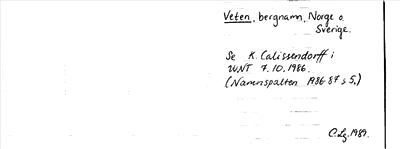 Veten, bergnamn, Norge o.
Sverige.
Se K. Calissendorff i
UNT 7.10.1986.
(Namnspalten 1986-87 s 5.)
C.Lg. 1989.